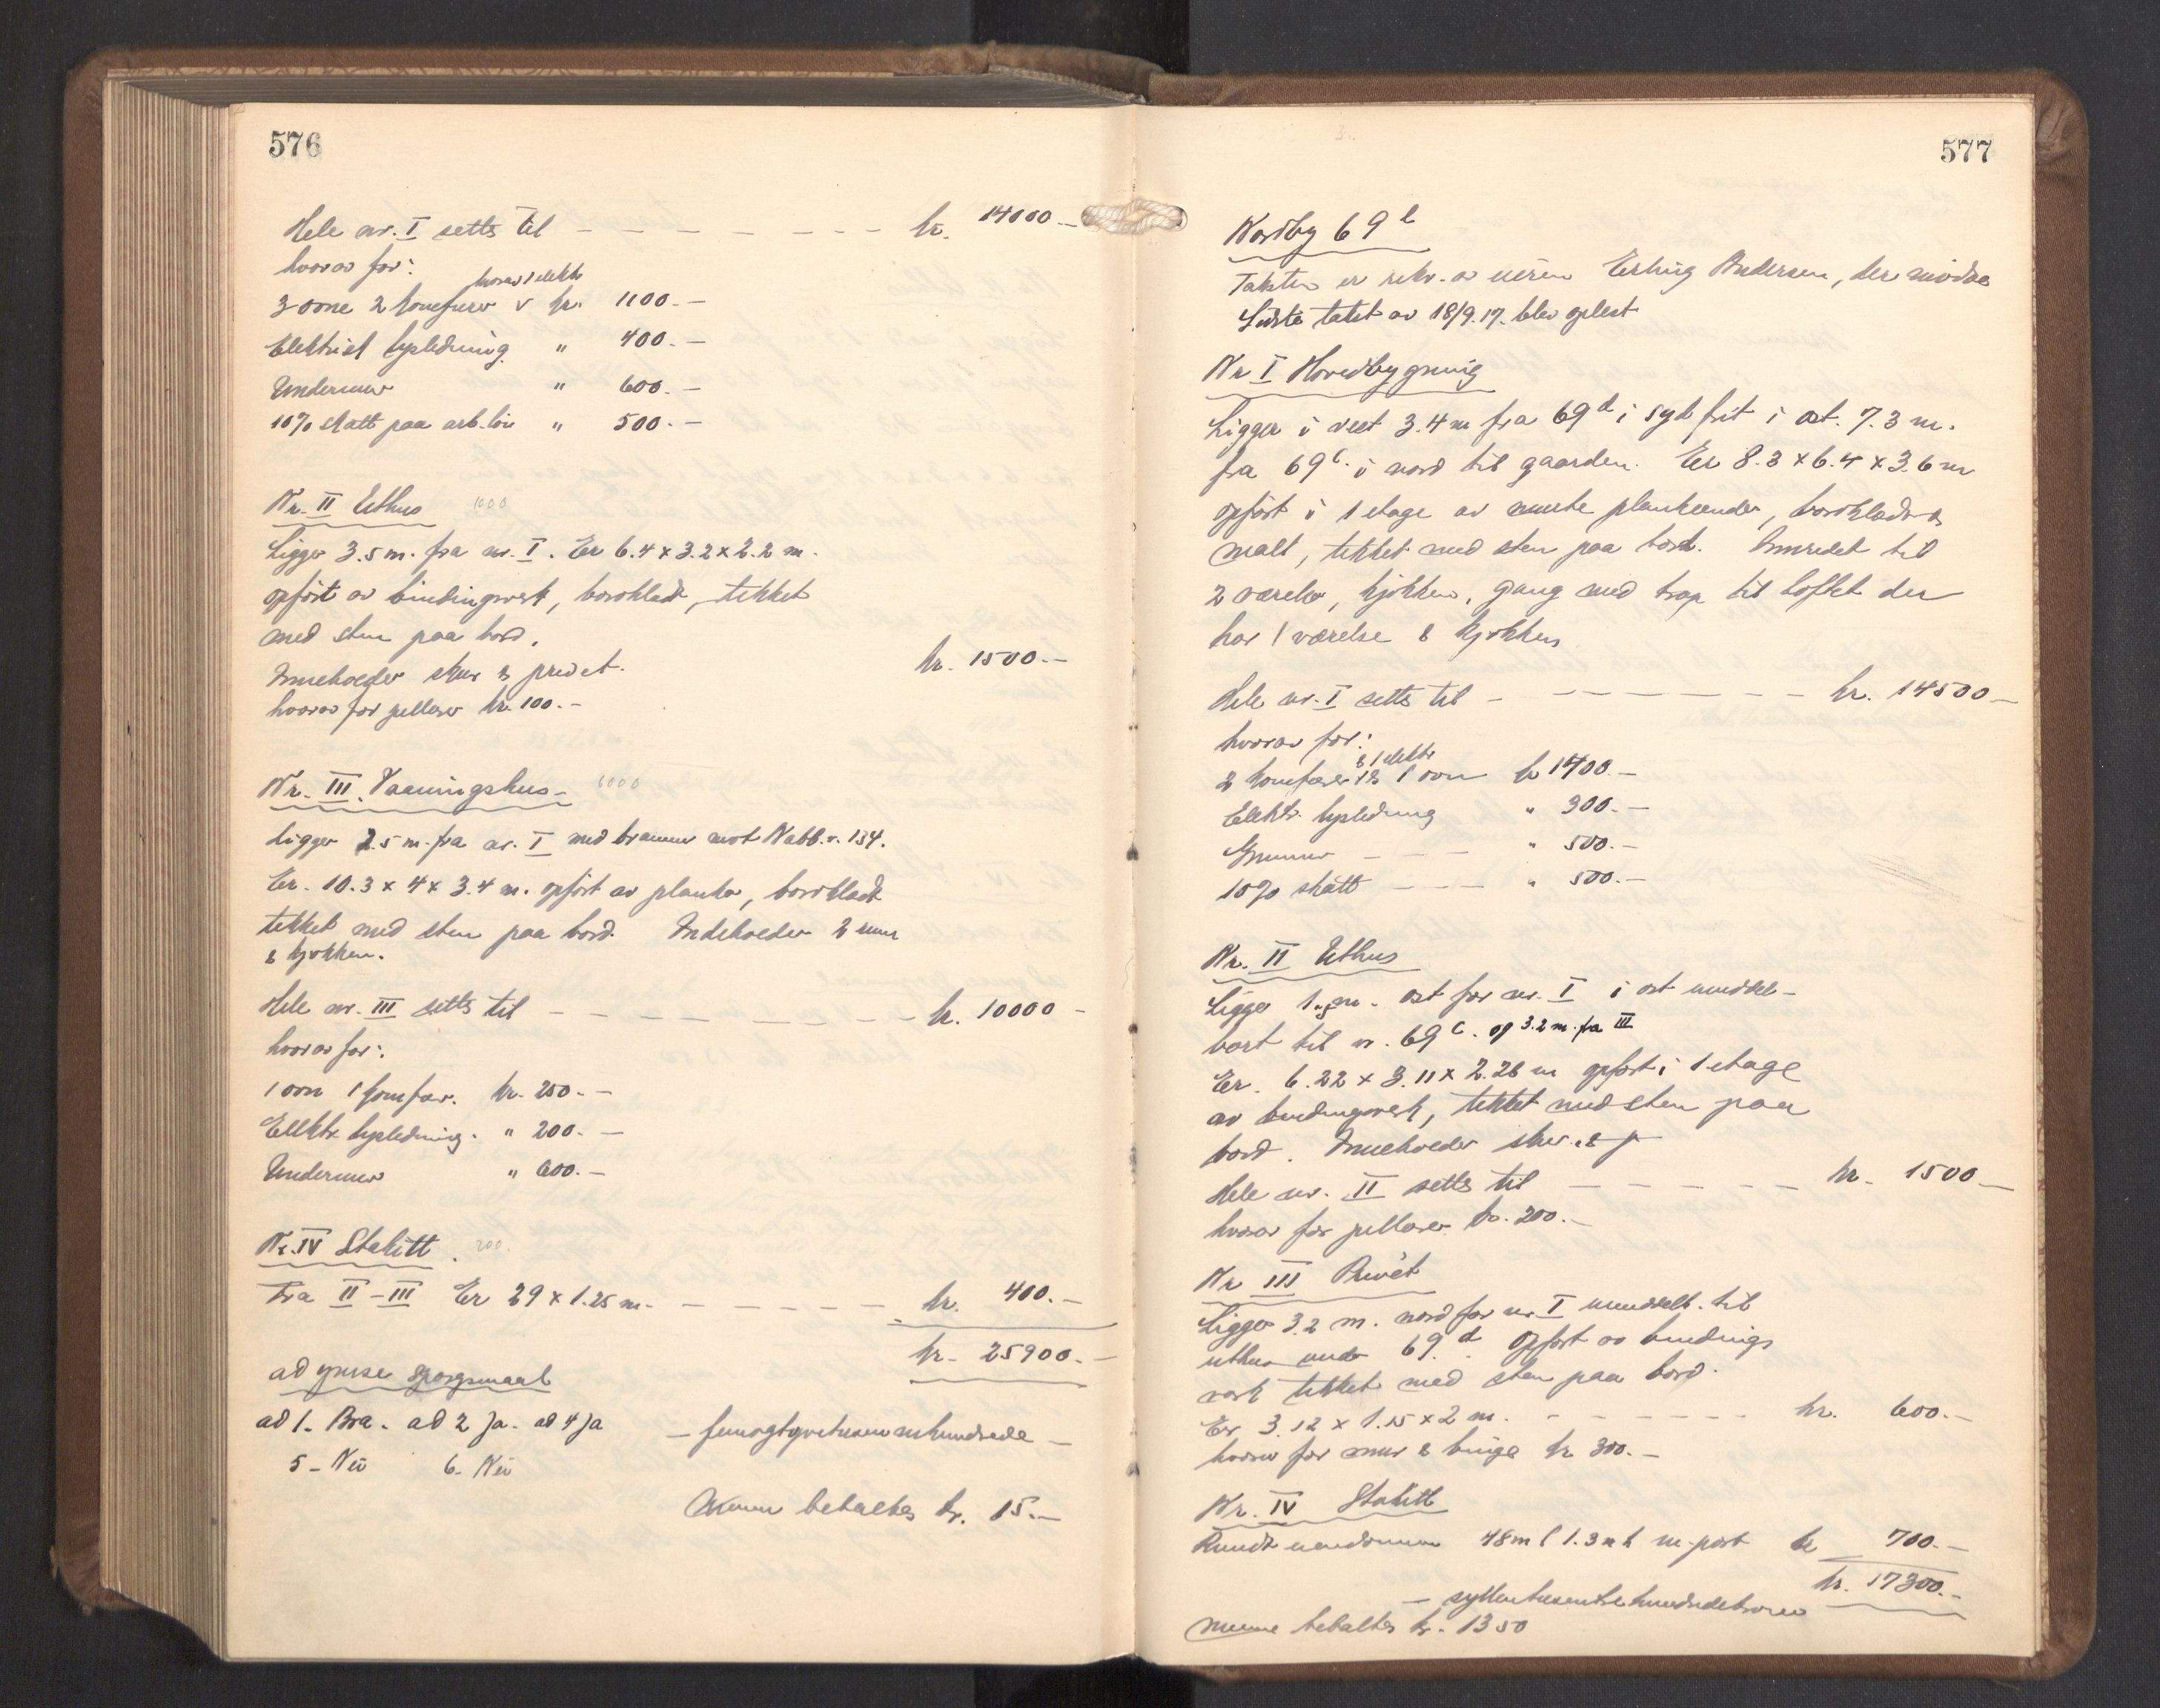 576
Hele nr. I settes til — — — — — — — kr. 14000.—
hvorav for:
hvorav 1 elektr
3 ovne 2 komfurer v kr. 1100.—
Elektrisk lysledning " 400.—
Undermur " 600.—
10% skatt paa arb.løn " 500.—
Nr. II Uthus 1000
Ligger 3.5 m. fra nr. I. Er 6.4 x 3.2 x 2.2 m.
opført av bindingsverk, bordklædt, tekket
med sten paa bord.
Inneholder skur & privet. kr. 1500.—
hvorav for pillarer kr. 100.—
Nr. III. Vaaningshus 6000
Ligger 2.5 m. fra nr. I med brannmur mot Nabb. v. 134.
Er. 10.3 x 4 x 3.4 m. opført av planker, bordklædt
tekket med sten paa bord. Indeholder 2 rum
& kjøkken.
Hele nr. III settes til — — — — — — — kr. 10000 -
hvorav for:
1 ovn 1 komfur. kr. 250.—
Elektr. lysledning. " 200.—
Undermur " 600.—
Nr. IV Stakitt. 200.
Fra II – III Er 29 x 1.25 m. — — — — — kr. 400.—
kr. 25900.—
ad gruse spørgsmaal
ad 1. Bra. ad 2 Ja. ad 4 Ja
— femogtyvetusennihundrede —
5 - Nei 6 - Nei
betaltes kr. 15.—
577
Nordby 69 l
Taksten er rekv. av eieren Erling Andersen, der mødte
Sidste takst av 18/9.17. blev oplest
Nr I Hovedbygning
Ligger i vest 3.4 m fra 69 d i syd frit i øst. 7.3 m.
fra 69 c. i nord til gaarden. Er 8.3 x 6.4 x 3.6 m
opført i 1 etage av planker, bordklædt &
malt, tekket med sten paa bord. Innredet til
2 værelser, kjøkken, gang med trap til loftet der
har 1 værelse & kjøkken
Hele nr. I settes til — — — — — — kr. 14500 —
hvorav for:
& 1 elektr
2 komfurer & 1 ovn kr 1400.—
Elektr. lysledning " 300.—
Grunmur — — — " 500.—
10% skatt — — — " 500.—
Nr. II Uthus
Ligger 1.5 m. øst for nr. I i øst umiddel-
bart til nr. 69 c. og 3.2 m. fra III
Er. 6.22 x 3.11 x 2.28 m opført i 1 etage
av bindingsverk, tekket med sten paa
bord. Inneholder skur. & p
Hele nr. II settes til — — — — — kr. 1500 —
hvorav for pillarer kr. 200.—
Nr III Privet
Ligger 3.2 m. nord for nr. I umiddelb. til
uthus under 69 d. Opført av bindings
verk tekket med sten paa bord.
Er 3.12 x 1.15 x 2 m. - — — — — kr. 600.—
hvorav for mur & binge kr 300.—
Nr. IV Stakitt
Rundt eiendommen 48 m l 1.3 m h m. port kr 700.—
kr. 17300.—
— syttentusentrehundredekroner
betaltes kr. 13 50